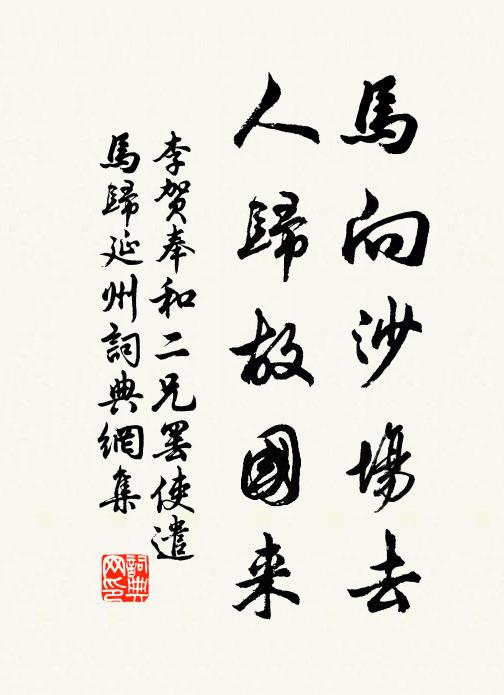 馬向沙場去
人歸故國来
李贺奉和二兄罢使遣
馬歸延州詞典網集
詞典
网印